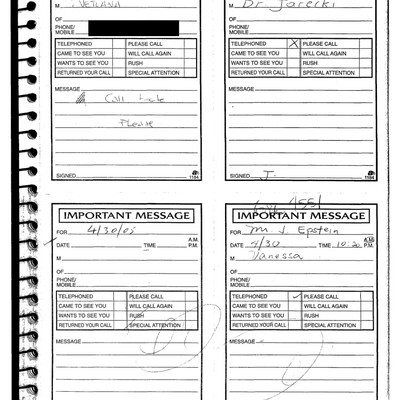 M VETLANA
OF
PHONE/
MOBILE
TELEPHONED PLEASE CALL
CAME TO SEE YOU WILL CALL AGAIN
WANTS TO SEE YOU RUSH
RETURNED YOUR CALL SPECIAL ATTENTION
MESSAGE
Call back
Please
SIGNED
1184
M Dr Jarecki
OF
PHONE/
MOBILE
TELEPHONED X PLEASE CALL
CAME TO SEE YOU WILL CALL AGAIN
WANTS TO SEE YOU RUSH
RETURNED YOUR CALL SPECIAL ATTENTION
MESSAGE
SIGNED J.
1184
IMPORTANT MESSAGE
FOR 4/30/05
DATE TIME A.M.
P.M.
M
OF
PHONE/
MOBILE
TELEPHONED PLEASE CALL
CAME TO SEE YOU WILL CALL AGAIN
WANTS TO SEE YOU RUSH
RETURNED YOUR CALL SPECIAL ATTENTION
MESSAGE
4551
IMPORTANT MESSAGE
FOR Mr. J. Epstein
DATE 4/30 TIME 10:20 A.M.
P.M.
M Vanessa
OF
PHONE/
MOBILE
TELEPHONED ✓ PLEASE CALL
CAME TO SEE YOU WILL CALL AGAIN
WANTS TO SEE YOU RUSH
RETURNED YOUR CALL SPECIAL ATTENTION
MESSAGE